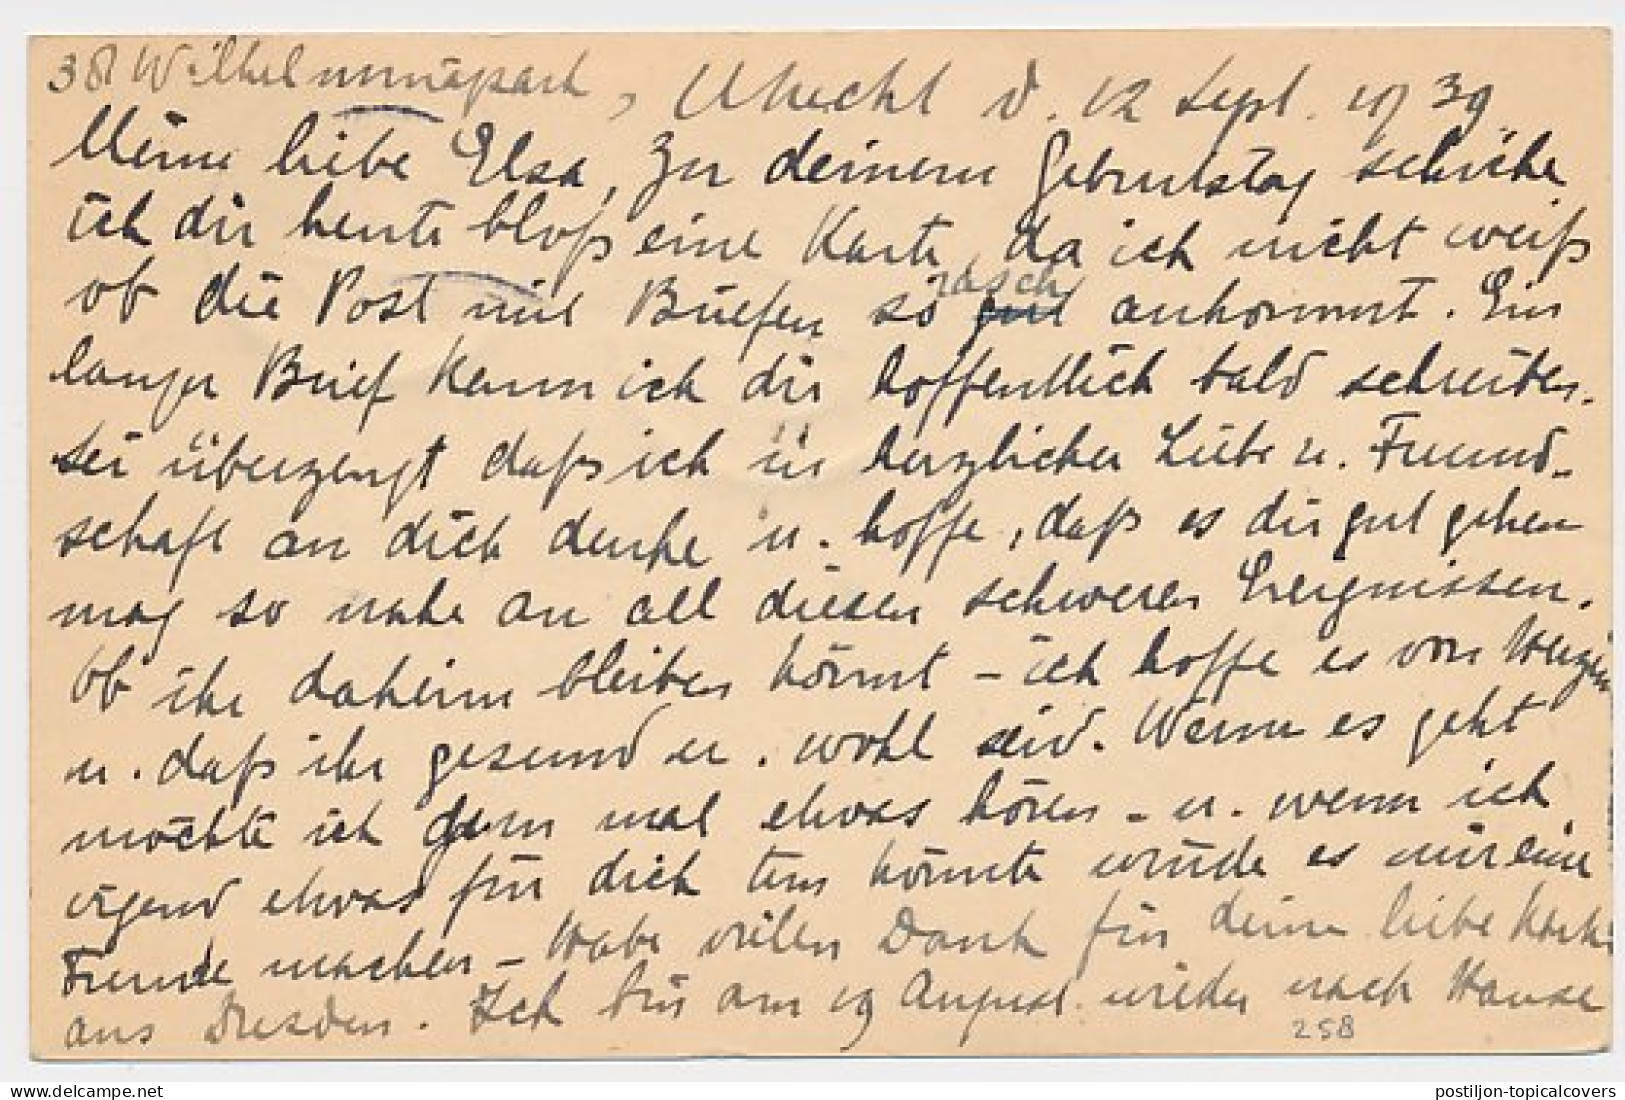 38 Wilhelminapark, Utrecht d. 12 Sept. 1939
Meine liebe Elsa, Zu deinem Geburtstag schicke
ich dir heute bloß eine Karte, da ich nicht weiß
ob die Post mit Briefen so rasch ankommt. Ein
langer Brief kann ich dir hoffentlich bald schreiben.
Sei überzeugt daß ich in herzlicher Liebe u. Freund-
schaft an dich denke u. hoffe, daß es dir gut gehen
mag so nahe an all diesen schweren Ereignissen.
Ob ihr daheim bleiben könnt – ich hoffe es von Herzen
u. daß ihr gesund u. wohl seid. Wenn es geht
möchte ich gern mal etwas hören – u. wenn ich
irgend etwas für dich tun könnte würde es mir eine
Freude machen – Habe vielen Dank für deine liebe Karte
aus Dresden. Ich bin am 19 August wieder nach Hause
258
postiljon-topicalcovers